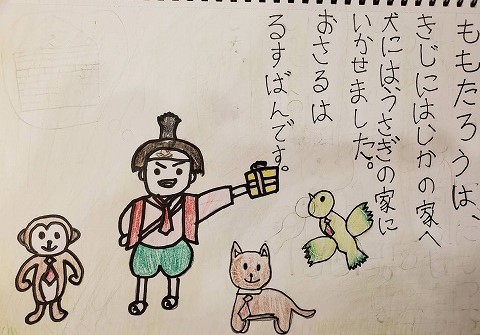 ももたろうは、
きじにはしかの家へ
犬には、うさぎの家に
いかせました。
おさるは
るすばんです。